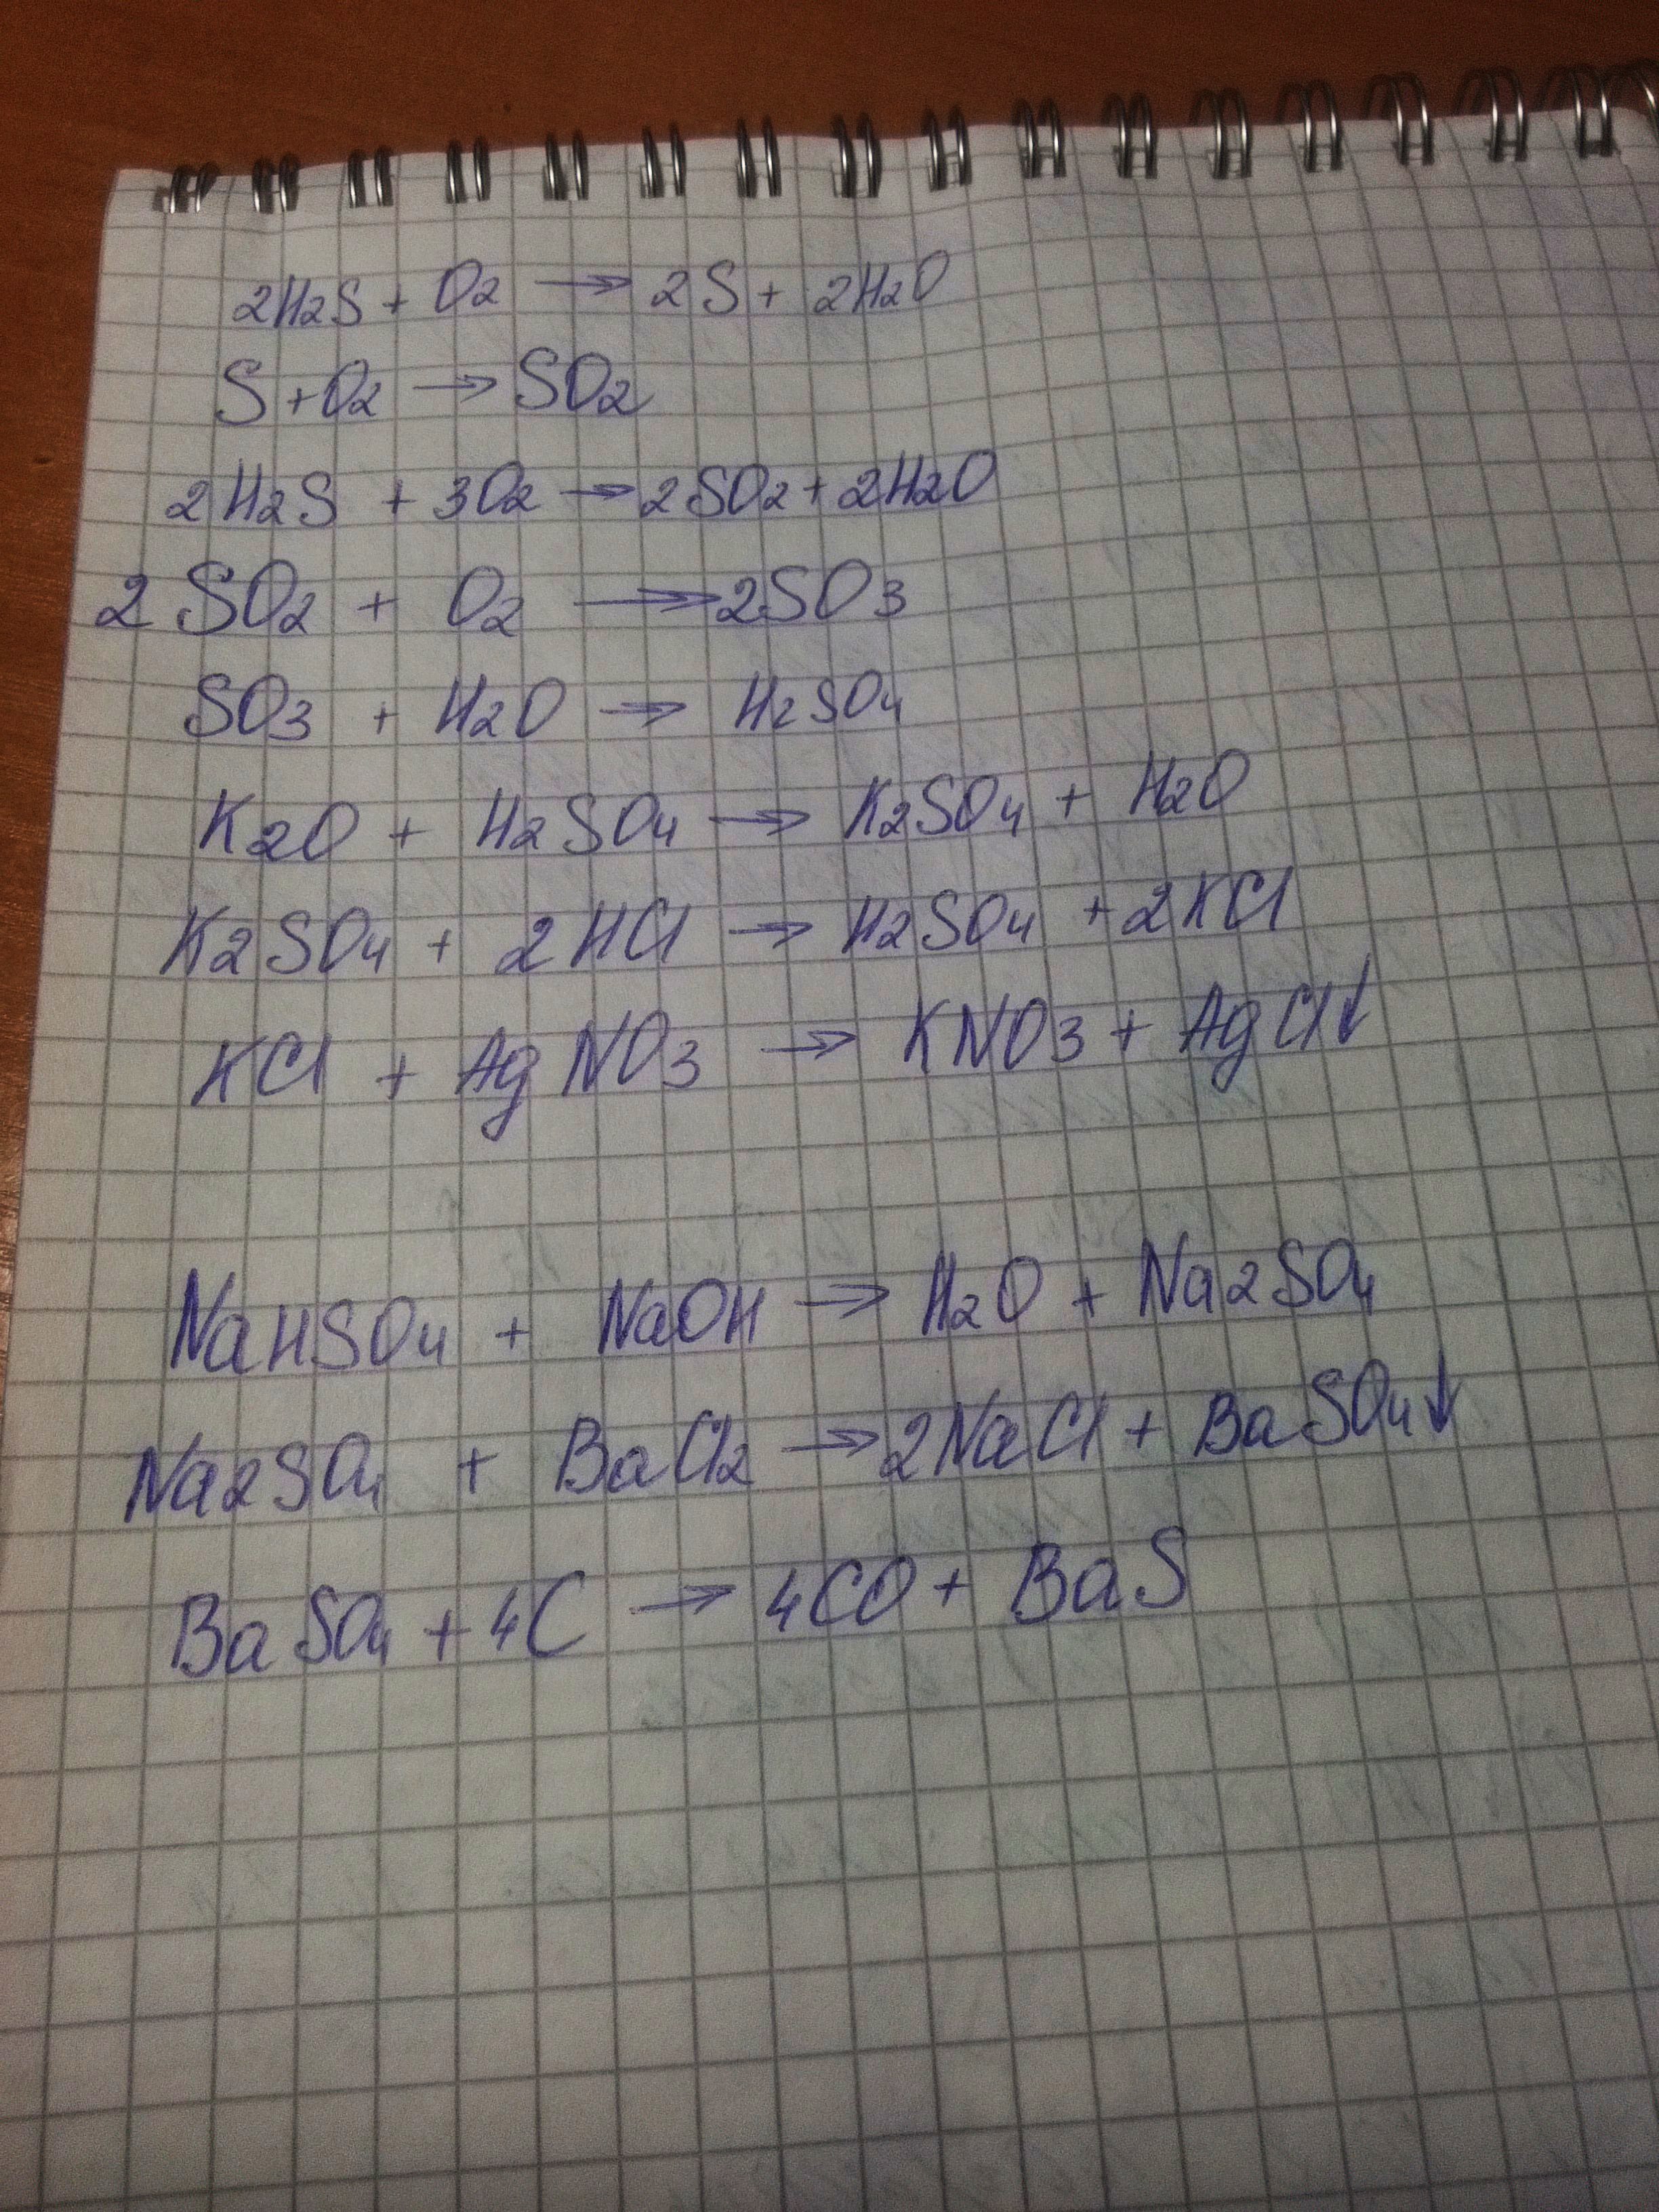 2H2S + O2 → 2S + 2H2O
S + O2 → SO2
2H2S + 3O2 → 2SO2 + 2H2O
2SO2 + O2 → 2SO3
SO3 + H2O → H2SO4
K2O + H2SO4 → K2SO4 + H2O
K2SO4 + 2HCl → H2SO4 + 2KCl
KCl + AgNO3 → KNO3 + AgCl↓
NaHSO4 + NaOH → H2O + Na2SO4
Na2SO4 + BaCl2 → 2NaCl + BaSO4↓
BaSO4 + 4C → 4CO + BaS